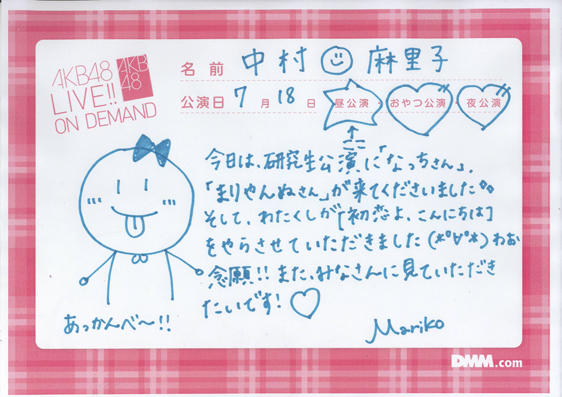 AKB48
LIVE!!
ON DEMAND
AKB
48
名前 中村 麻里子
公演日 7月18日 昼公演 おやつ公演 夜公演
今日は、研究生公演に「なっちさん」、
「まりやんぬさん」が来てくださいました。
そして、わたくしが[初恋よ、こんにちは]
をやらせていただきました(*°∀°*)わお
念願!!また、みなさんに見ていただき
たいです!♡
あっかんべ〜!!
Mariko
DMM.com